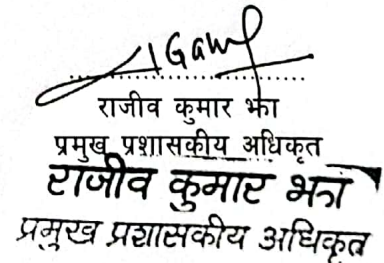 राजीव कुमार झा
प्रमुख प्रशासकीय अधिकृत
राजीव कुमार झा
प्रमुख प्रशासकीय अधिकृत